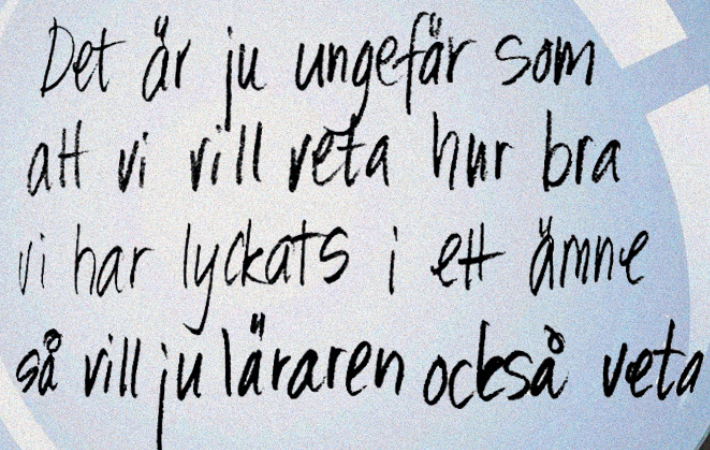 Det är ju ungefär som
att vi vill veta hur bra
vi har lyckats i ett ämne
så vill ju läraren också veta